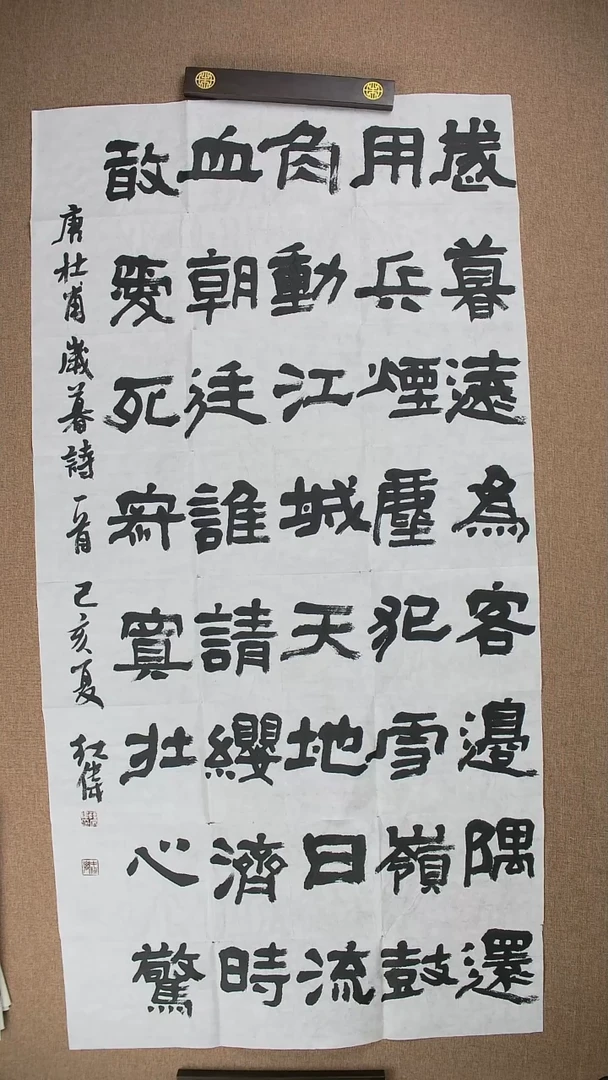 歲暮遠為客邊隅還
用兵煙塵犯雪嶺鼓
角動江城天地日流
血朝廷誰請纓濟時
敢愛死寂寞壯心驚
唐杜甫歲暮詩一首 己亥夏 紅偉